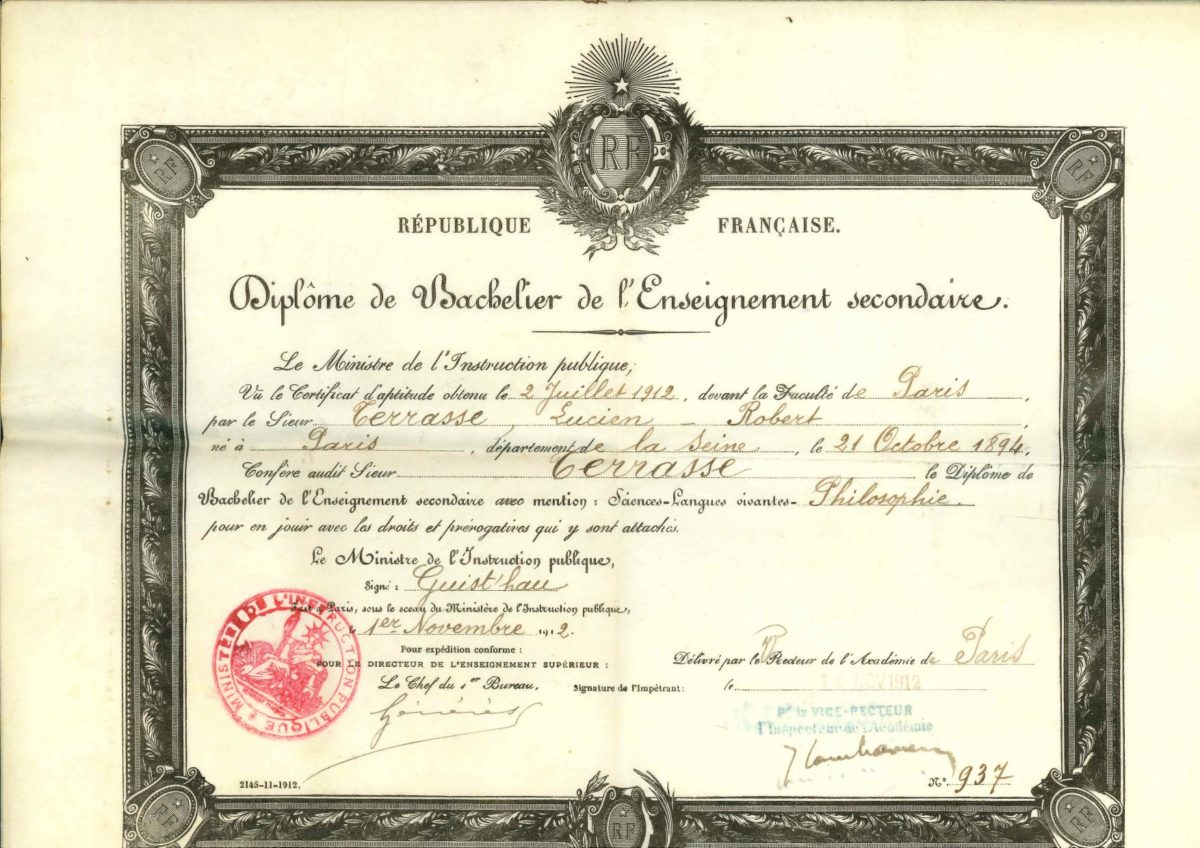 RF
RF
RF
RÉPUBLIQUE FRANÇAISE.
Diplôme de Bachelier de l'Enseignement secondaire.
Le Ministre de l'Instruction publique,
Vu le Certificat d'aptitude obtenu le 2 Juillet 1912, devant la Faculté de Paris
par le Sieur Terrasse, Lucien - Robert
né à Paris, département de la Seine, le 21 Octobre 1894,
Confère audit Sieur Terrasse le Diplôme de
Bachelier de l'Enseignement secondaire avec mention : Sciences-Langues vivantes- Philosophie.
pour en jouir avec les droits et prérogatives qui y sont attachés.
Le Ministre de l'Instruction publique,
Signé : Guist'hau
Fait à Paris, sous le sceau du Ministère de l'Instruction publique,
le 1er Novembre 1912.
MINISTÈRE DE L'INSTRUCTION PUBLIQUE
Pour expédition conforme :
POUR LE DIRECTEUR DE L'ENSEIGNEMENT SUPÉRIEUR :
Le Chef du 1er Bureau,
Signature de l'Impétrant :
Délivré par le V Recteur de l'Académie de Paris
le NOV 1912
Pr le VICE-RECTEUR
l'Inspecteur de l'Académie
2145-11-1912.
N° 937
RF
RF
RF